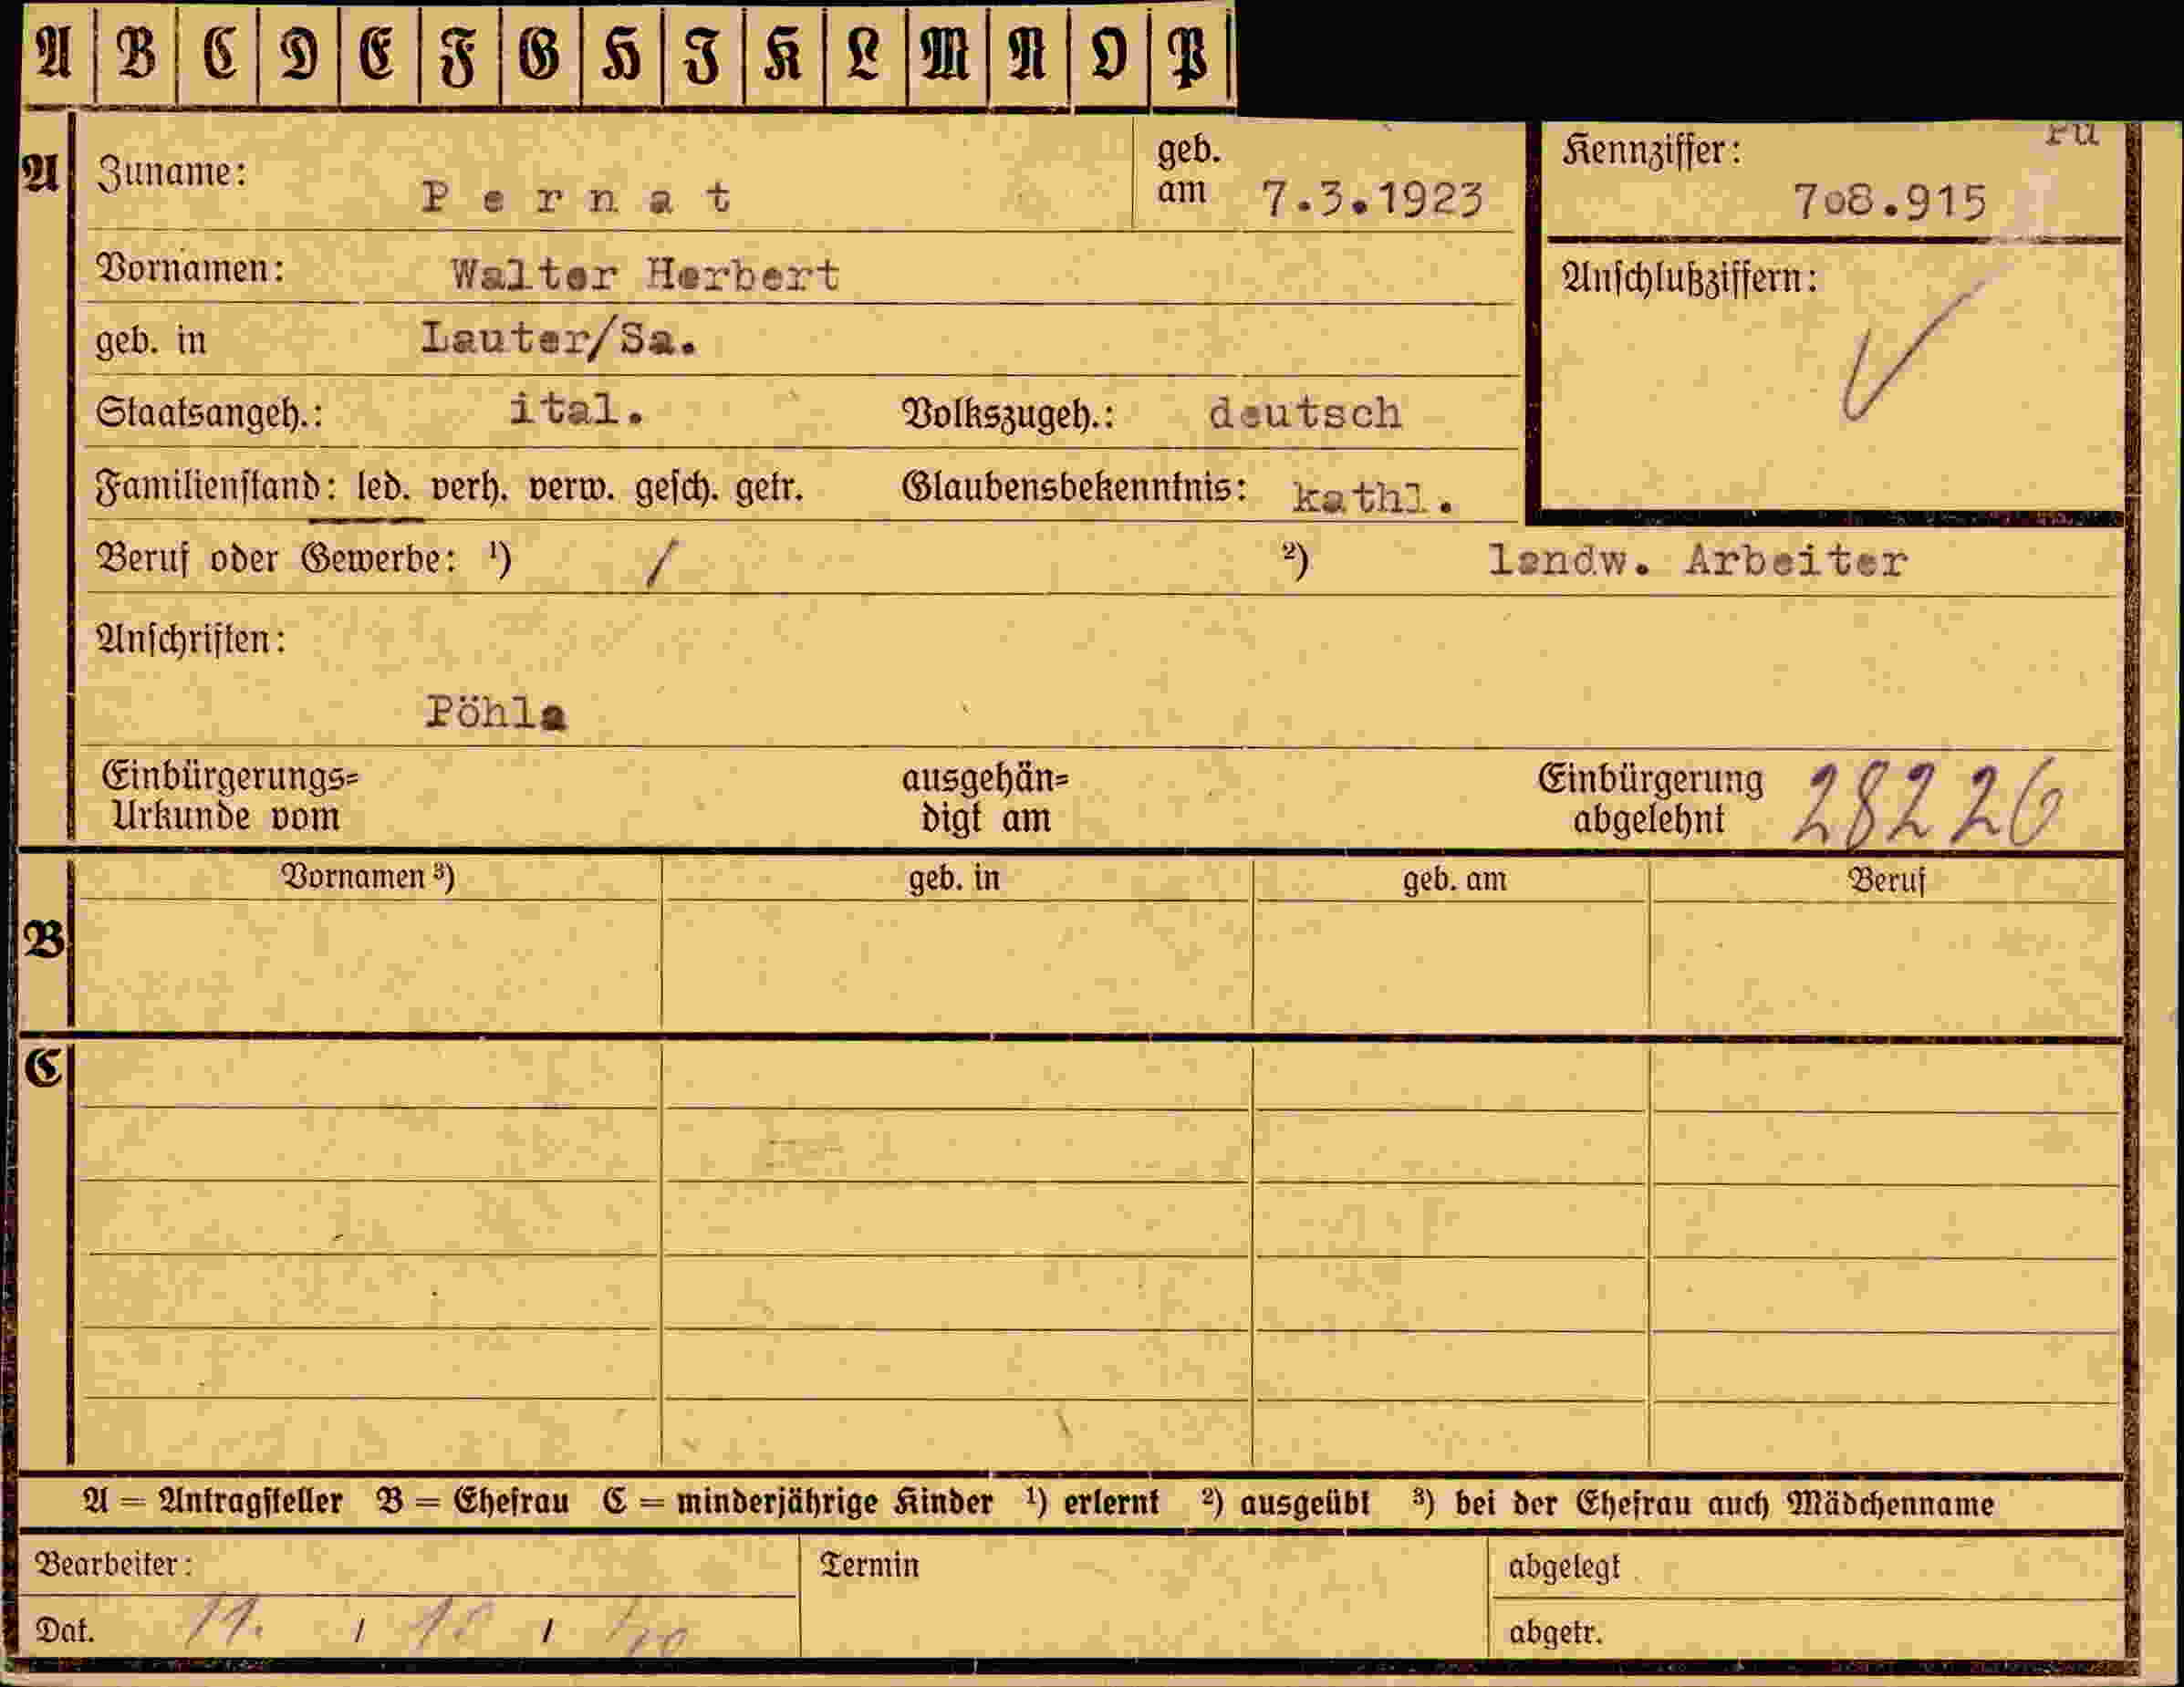 A B C D E F G H I K L M N O P
A Zuname: Pernat geb. am 7.3.1923 Kennziffer: 708.915
Vornamen: Walter Herbert Anschlußziffern:
geb. in Lauter/Sa.
Staatsangeh.: ital. Volkszugeh.: deutsch
Familienstand: led. verh. verw. gesch. getr. Glaubensbekenntnis: kathl.
Beruf oder Gewerbe: ¹) / ²) landw. Arbeiter
Anschriften:
Pöhla
Einbürgerungs= ausgehän= Einbürgerung 28226
Urkunde vom digt am abgelehnt
Vornamen ³) geb. in geb. am Beruf
B
C
A = Antragsteller B = Ehefrau C = minderjährige Kinder ¹) erlernt ²) ausgeübt ³) bei der Ehefrau auch Mädchenname
Bearbeiter: Termin abgelegt
Dat. 11. / / abgetr.